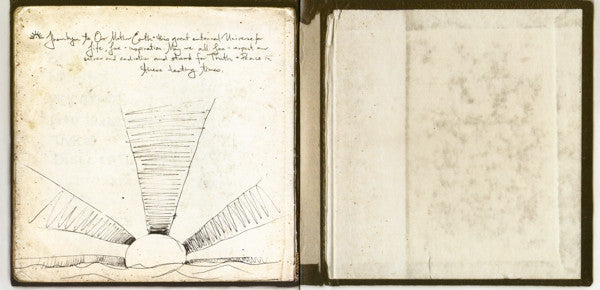 to, Our Mother Earth this great Universe for
life, love + inspiration May we all love + respect our
selves and each other and stand for Truth + Peace in
these testing times.